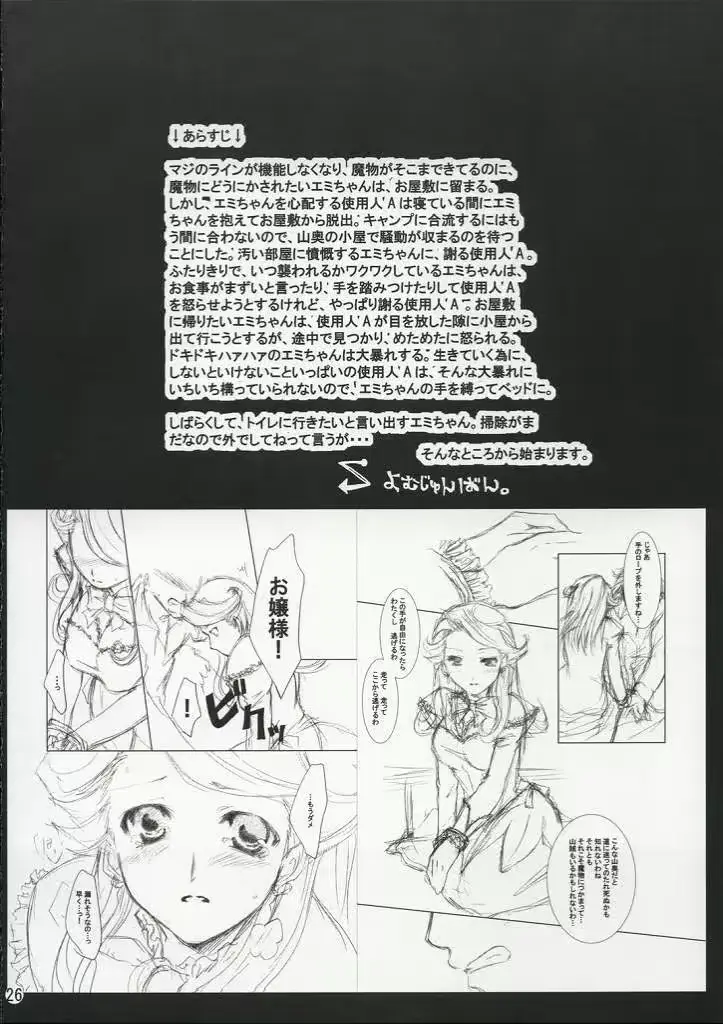 ↓あらすじ↓
マジのラインが機能しなくなり、魔物がそこまできてるのに、
魔物にどうにかされたいエミちゃんは、お屋敷に留まる。
しかし、エミちゃんを心配する使用人'Aは寝ている間にエミ
ちゃんを抱えてお屋敷から脱出。キャンプに合流するにはも
う間に合わないので、山奥の小屋で騒動が収まるのを待つ
ことにした。汚い部屋に憤慨するエミちゃんに、謝る使用人'A。
ふたりきりで、いつ襲われるかワクワクしているエミちゃんは、
お食事がまずいと言ったり、手を踏みつけたりして使用人'A
を怒らせようとするけれど、やっぱり謝る使用人'A。お屋敷
に帰りたいエミちゃんは、使用人'Aが目を放した隙に小屋から
出て行こうとするが、途中で見つかり、めためたに怒られる。
ドキドキハァハァのエミちゃんは大暴れする。生きていく為に、
しないといけないこといっぱいの使用人'Aは、そんな大暴れに
いちいち構っていられないので、エミちゃんの手を縛ってベッドに。
しばらくして、トイレに行きたいと言い出すエミちゃん。掃除がま
だなので外でしてねって言うが・・・
そんなところから始まります。
よむじゅんばん。
じゃあ
手のロープを外しますね…！
この手が自由になったら
わたくし 逃げるわ
走って 走って
ここから逃げるわ
こんな山奥だと
道に迷ってのたれ死ぬかも
知れないわね
それとも
それこそ魔物につかまって…
山賊もいるかもしれないわ…
お嬢様！
！
ビクッ
…っ
…もうダメ
漏れそうなの…っ
早く…っ！
26